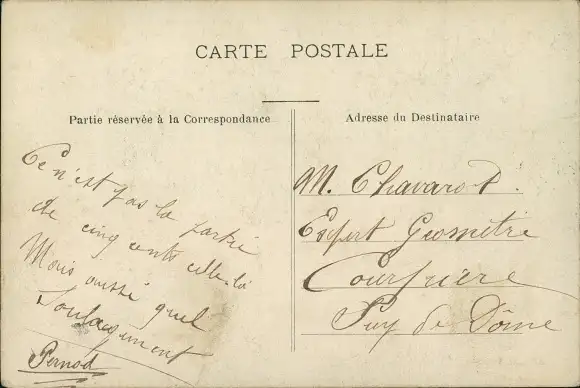 CARTE POSTALE
Partie réservée à la Correspondance
Adresse du Destinataire
Ce n'est pas la partie
de cinq cents celle-là
Mais aussi quel
Soulagement
Pernod
M. Chavarot
Expert Géomètre
Courpière
Puy de Dôme